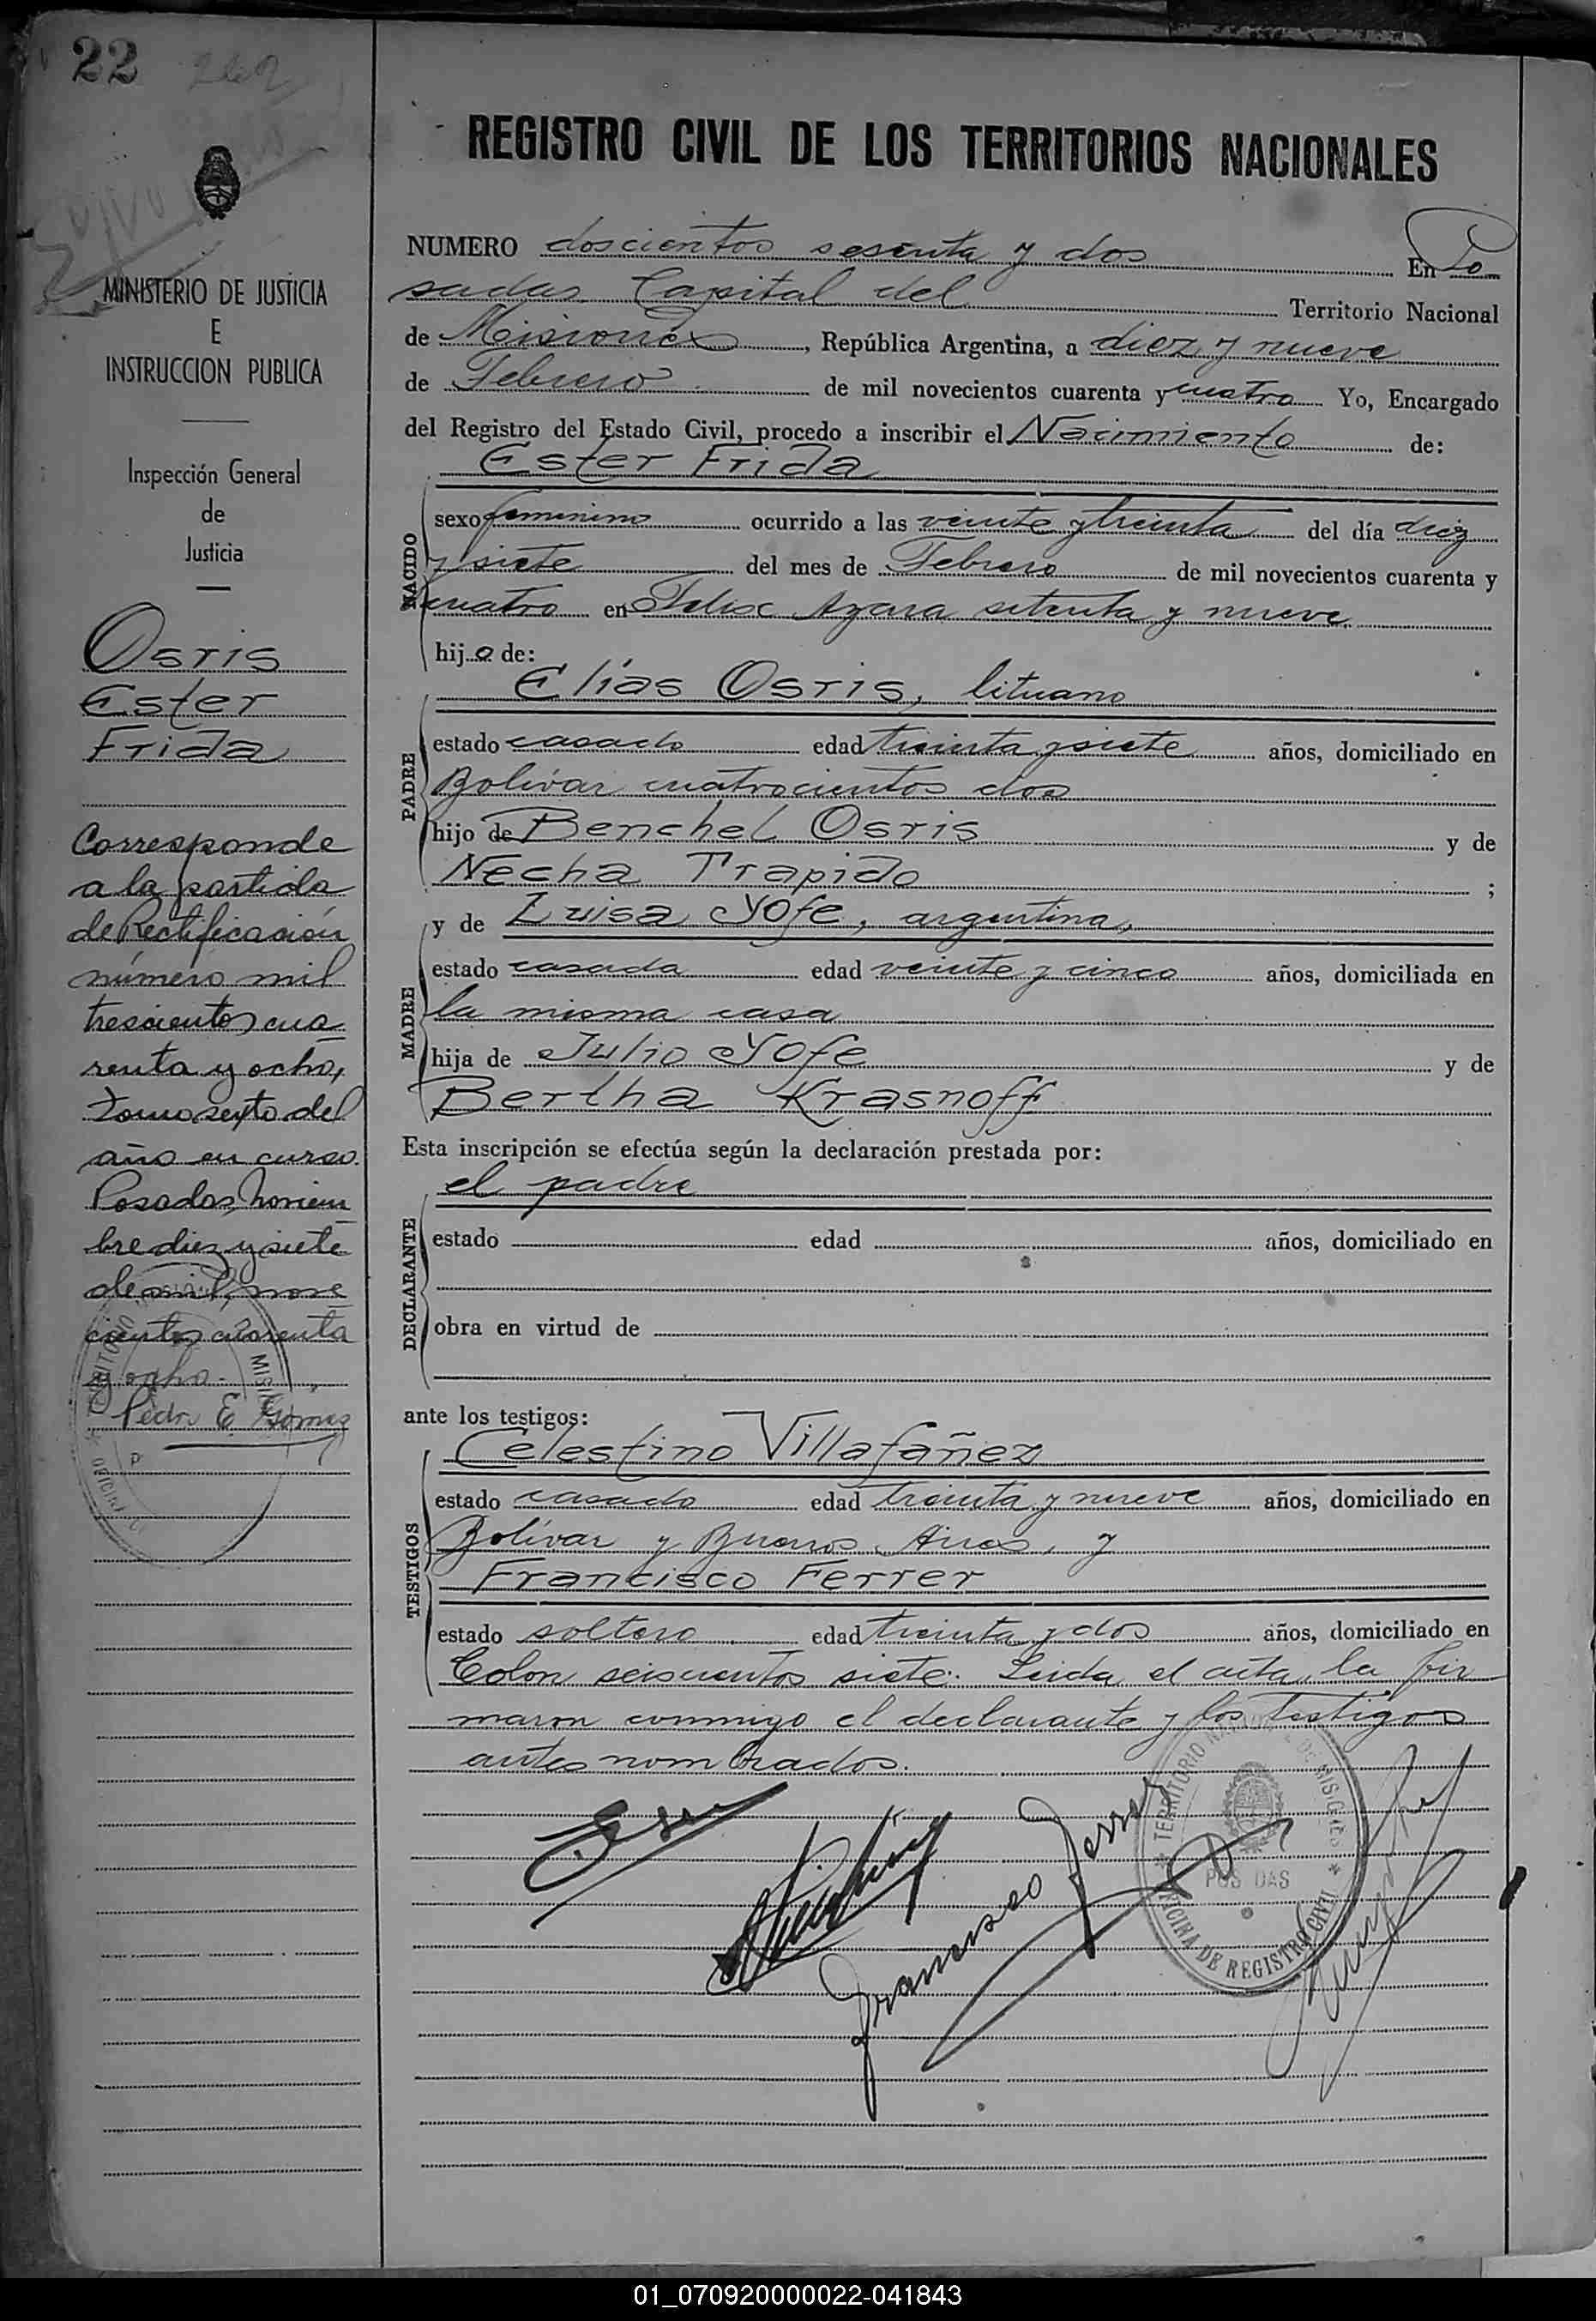 22 262
REGISTRO CIVIL DE LOS TERRITORIOS NACIONALES
MINISTERIO DE JUSTICIA
E
INSTRUCCION PUBLICA
Inspección General
de
Justicia
Osris
Ester
Frida
Corresponde
a la partida
de Rectificación
número mil
trescientos cua
renta y ocho,
tomo sexto del
año en curso.
Posadas, noviem
bre diez y siete
de mil, nove
cientos cuarenta
y ocho.-
Pedro E. Gómez
NUMERO doscientos sesenta y dos En Po
sadas Capital del Territorio Nacional
de Misiones, República Argentina, a diez y nueve
de Febrero de mil novecientos cuarenta y cuatro Yo, Encargado
del Registro del Estado Civil, procedo a inscribir el Nacimiento de:
Ester Frida
NACIDO
sexo femenino ocurrido a las veinte y treinta del día diez
y siete del mes de Febrero de mil novecientos cuarenta y
cuatro en Felix Azara setenta y nueve
hija de:
PADRE
Elías Osris, lituano
estado casado edad treinta y siete años, domiciliado en
Bolívar cuatrocientos dos
hijo de Benchel Osris y de
Necha Trapido ;
MADRE
y de Luisa Yofe, argentina,
estado casada edad veinte y cinco años, domiciliada en
la misma casa
hija de Julio Yofe y de
Bertha Krasnoff
Esta inscripción se efectúa según la declaración prestada por:
DECLARANTE
el padre
estado edad años, domiciliado en
obra en virtud de
ante los testigos:
TESTIGOS
Celestino Villafañez
estado casado edad treinta y nueve años, domiciliado en
Bolívar y Buenos Aires, y
Francisco Ferrer
estado soltero edad treinta y dos años, domiciliado en
Colon seiscientos siete. Leida el acta, la fir
maron conmigo el declarante y los testigos
antes nombrados.
Francisco Ferrer
TERRITORIO NACIONAL DE MISIONES
POSADAS
OFICINA DE REGISTRO CIVIL
01_070920000022-041843